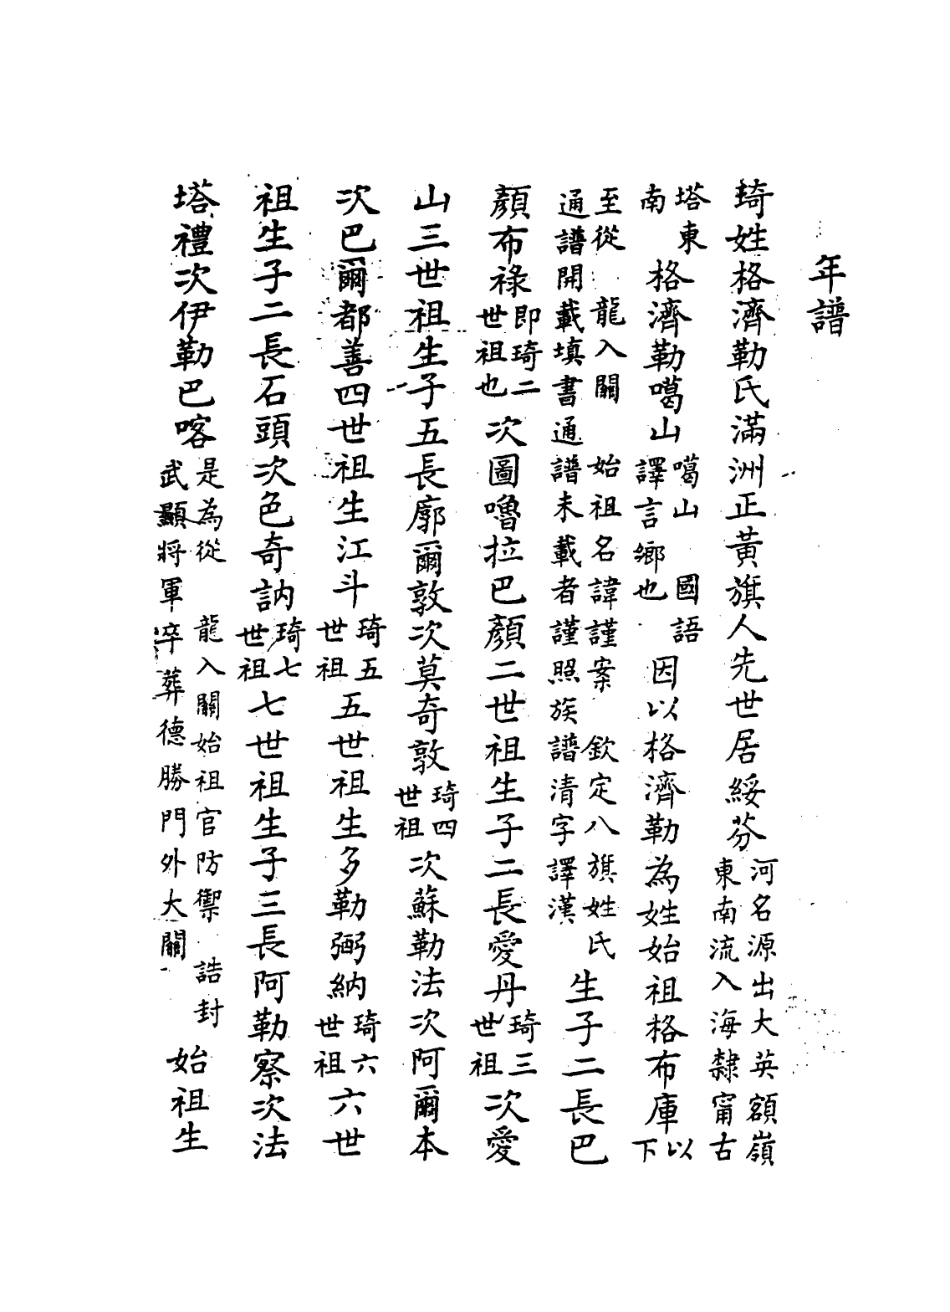 年譜
琦姓格濟勒氏滿洲正黃旗人先世居綏芬河名源出大英額嶺東南流入海隸甯古
塔東南格濟勒噶山噶山國語譯言鄉也因以格濟勒為姓始祖格布庫以下
至從龍入關始祖名諱謹案欽定八旗姓氏通譜開載填書通譜未載者謹照族譜清字譯漢生子二長巴
顏布祿即琦二世祖也次圖嚕拉巴顏二世祖生子二長愛丹琦三世祖次愛
山三世祖生子五長廓爾敦次莫奇敦琦四世祖次蘇勒法次阿爾本
次巴爾都善四世祖生江斗琦五世祖五世祖生多勒弼納琦六世祖六世
祖生子二長石頭次色奇訥琦七世祖七世祖生子三長阿勒察次法
塔禮次伊勒巴喀是為從龍入關始祖官防禦誥封武顯將軍卒葬德勝門外大關始祖生